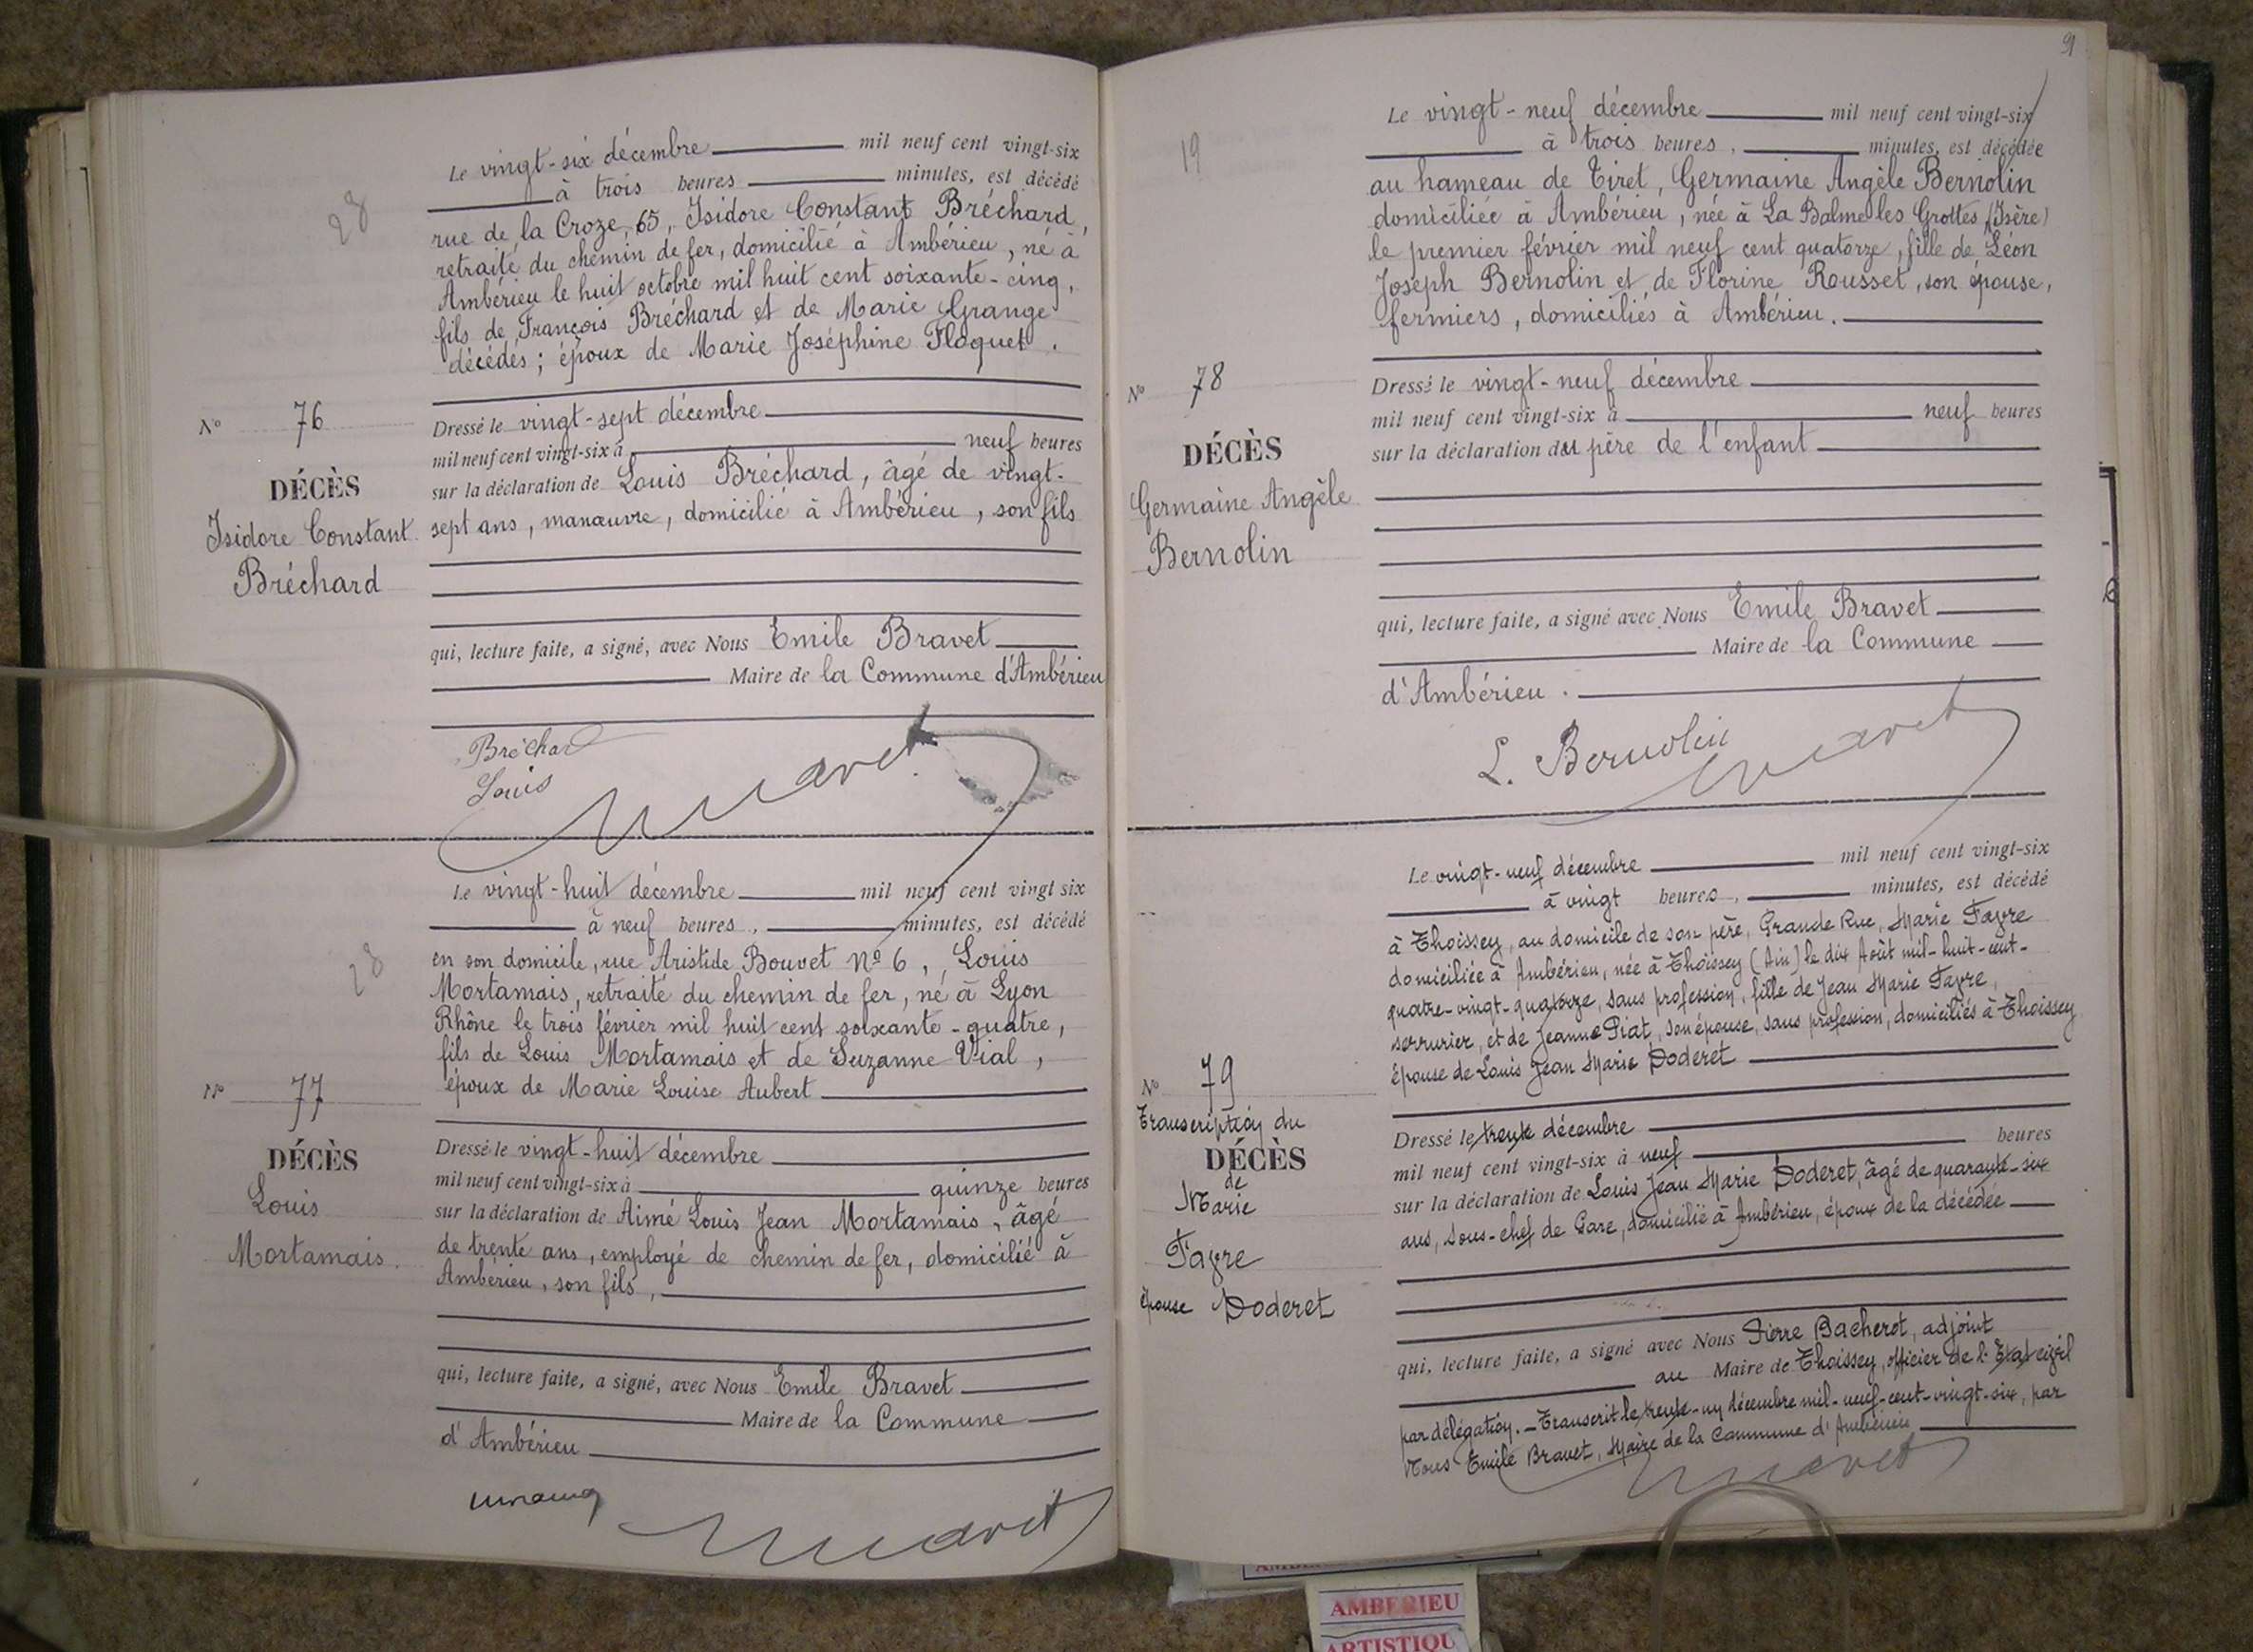 28
Le vingt-six décembre mil neuf cent vingt-six
à trois heures minutes, est décédé
rue de la Croze, 65, Isidore Constant Bréchard,
retraité du chemin de fer, domicilié à Ambérieu, né à
Ambérieu le huit octobre mil huit cent soixante-cinq,
fils de François Bréchard et de Marie Grange
décédés ; époux de Marie Joséphine Floquet.
No 76
DÉCÈS
Isidore Constant
Bréchard
Dressé le vingt-sept décembre
mil neuf cent vingt-six à neuf heures
sur la déclaration de Louis Bréchard, âgé de vingt-
sept ans, manœuvre, domicilié à Ambérieu, son fils
qui, lecture faite, a signé, avec Nous Emile Bravet
Maire de la Commune d'Ambérieu
Bréchard
Louis
Bravet
28
Le vingt-huit décembre mil neuf cent vingt six
à neuf heures, minutes, est décédé
en son domicile, rue Aristide Bouvet No 6, Louis
Mortamais, retraité du chemin de fer, né à Lyon
Rhône le trois février mil huit cent soixante-quatre,
fils de Louis Mortamais et de Suzanne Vial,
époux de Marie Louise Aubert
No 77
DÉCÈS
Louis
Mortamais.
Dressé le vingt-huit décembre
mil neuf cent vingt-six à quinze heures
sur la déclaration de Aimé Louis Jean Mortamais, âgé
de trente ans, employé de chemin de fer, domicilié à
Ambérieu, son fils,
qui, lecture faite, a signé, avec Nous Emile Bravet
Maire de la Commune
d'Ambérieu
Bravet
91
19
Le vingt-neuf décembre mil neuf cent vingt-six
à trois heures, minutes, est décédée
au hameau de Tiret, Germaine Angèle Bernolin
domiciliée à Ambérieu, née à La Balme les Grottes (Isère)
le premier février mil neuf cent quatorze, fille de Léon
Joseph Bernolin et de Florine Rousset, son épouse,
fermiers, domiciliés à Ambérieu.
No 78
DÉCÈS
Germaine Angèle
Bernolin
Dressé le vingt-neuf décembre
mil neuf cent vingt-six à neuf heures
sur la déclaration du père de l'enfant
qui, lecture faite, a signé avec Nous Emile Bravet
Maire de la Commune
d'Ambérieu.
L. Bernolin
Bravet
Le vingt-neuf décembre mil neuf cent vingt-six
à vingt heures, minutes, est décédé
à Thoissey, au domicile de son père, Grande Rue, Marie Fayre
domiciliée à Ambérieu, née à Thoissey (Ain) le dix Août mil-huit-cent-
quatre-vingt-quatorze, sans profession, fille de Jean Marie Fayre,
serrurier, et de Jeanne Piat, son épouse, sans profession, domiciliés à Thoissey
épouse de Louis Jean Marie Doderet
No 79
Transcription du
DÉCÈS
de
Marie
Fayre
épouse Doderet
Dressé le trente décembre
mil neuf cent vingt-six à neuf heures
sur la déclaration de Louis Jean Marie Doderet, âgé de quarante-six
ans, sous-chef de Gare, domicilié à Ambérieu, époux de la décédée
qui, lecture faite, a signé avec Nous Pierre Bacherot, adjoint
au Maire de Thoissey, officier de l'Etat civil
par délégation. - Transcrit le trente-un décembre mil-neuf-cent-vingt-six, par
Nous Emile Bravet, Maire de la Commune d'Ambérieu
Bravet
AMBERIEU
ARTISTIQU